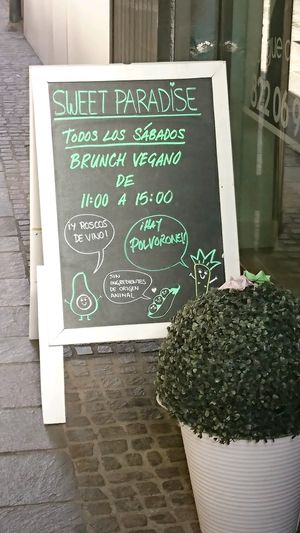 SWEET PARADISE
TODOS LOS SÁBADOS
BRUNCH VEGANO
DE
11:00 A 15:00
¡Y ROSCOS
DE VINO!
¡HAY
POLVORONES!
SIN
INGREDIENTES
DE ORIGEN
ANIMAL